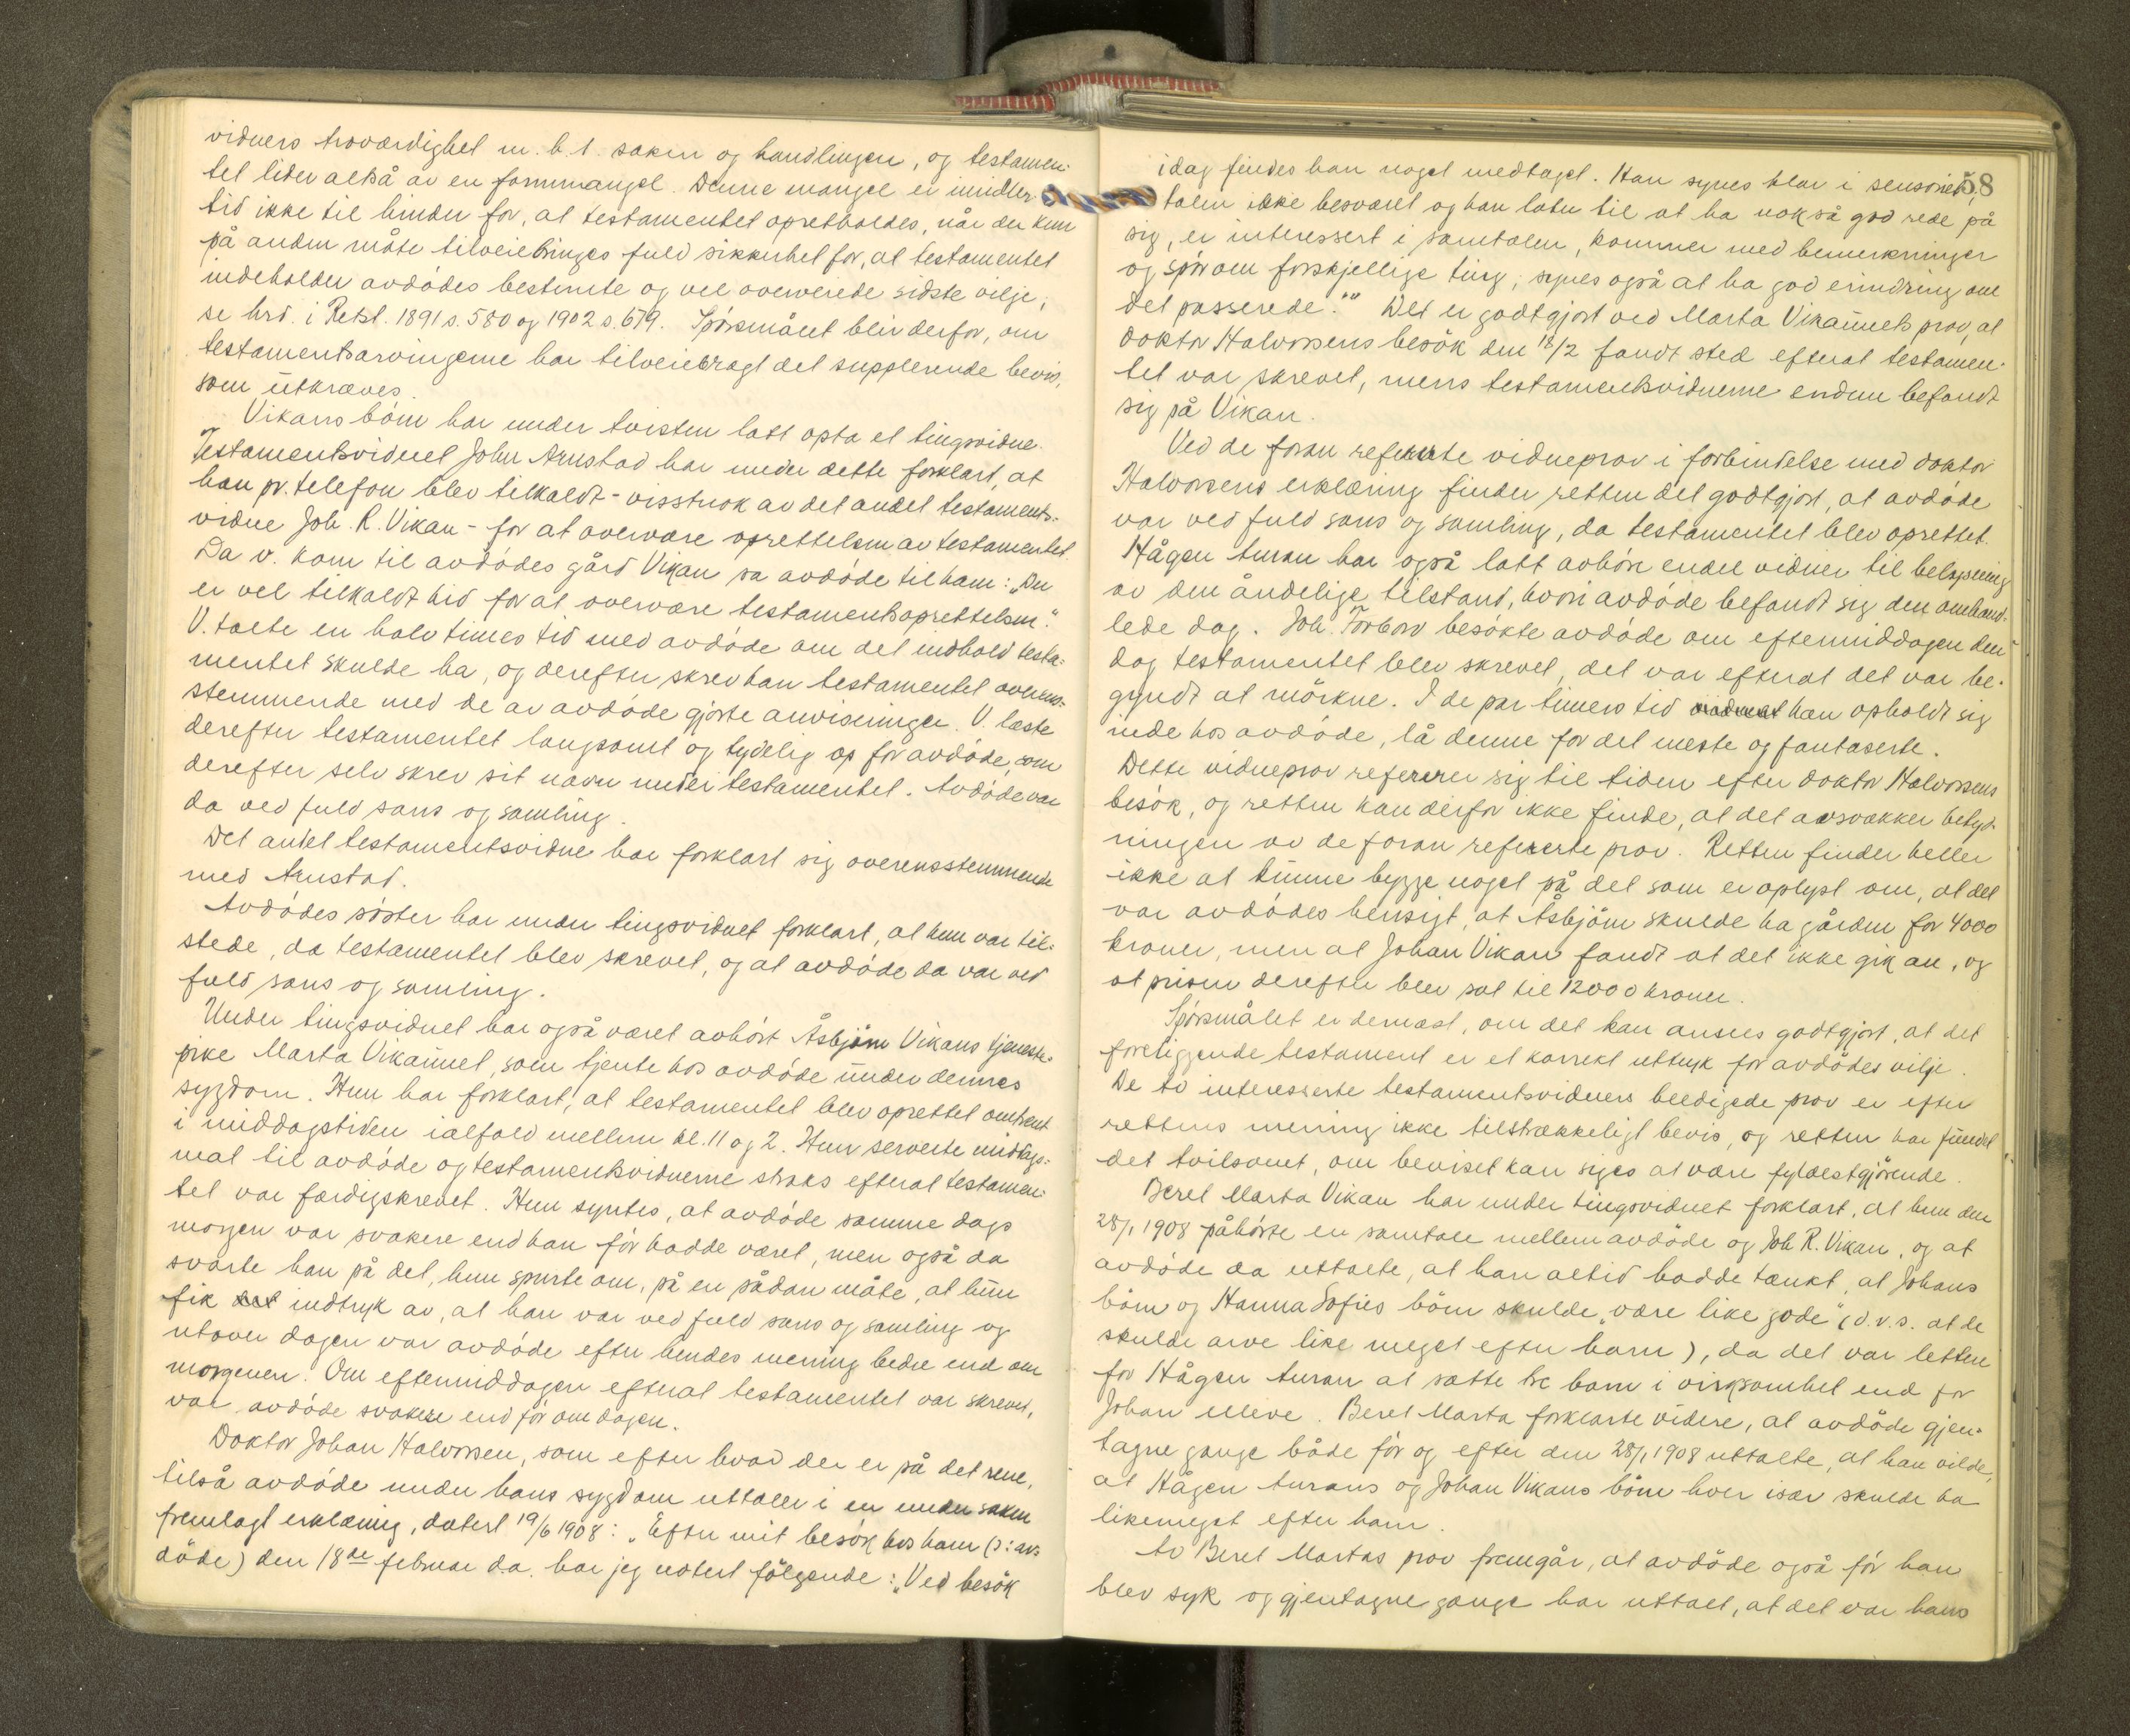 vidners troværdighet m. h. t. saken og handlingen, og testamen-
tet lider altså av en formmangel. Denne mangel er imidler-
tid ikke til hinder for, at testamentet opretholdes, når der kun
på anden måte tilveiebringes fuld sikkerhet for, at testamentet
indeholder avdödes bestemte og vel overveiede sidste vilje;
se hrd. i Retst. 1891 s. 580 og 1902 s. 679. Spörsmålet blir derfor, om
testamentsarvingerne har tilveiebragt det supplerende bevis,
som utkræves.
Vikans börn har under tvisten latt opta et tingsvidne.
Testamentsvidnet John Arnstad har under dette forklart, at
han pr. telefon blev tilkaldt - visstnok av det andet testaments-
vidne Joh. R. Vikan - for at overvære oprettelsen av testamentet.
Da v. kom til avdödes gård Vikan sa avdöde til ham: „Du
er vel tilkaldt hid for at overvære testamentsoprettelsen."
V. talte en halv times tid med avdöde om det indhold testa-
mentet skulde ha, og derefter skrev han testamentet overens-
stemmende med de av avdöde gjorte anvisninger. V. læste
derefter testamentet langsomt og tydelig op for avdöde, som
derefter selv skrev sit navn under testamentet. Avdöde var
da ved fuld sans og samling.
Det andet testamentsvidne har forklart sig overensstemmende
med Arnstad.
Avdödes söster har under tingsvidnet forklart, at hun var til-
stede, da testamentet blev skrevet, og at avdöde da var ved
fuld sans og samling.
Under tingsvidnet har også været avhört Åsbjörn Vikans tjeneste-
pike Marta Vikaunet, som tjente hos avdöde under dennes
sygdom. Hun har forklart, at testamentet blev oprettet omtrent
i middagstiden ialfald mellem kl. 11 og 2. Hun serverte middags-
mat til avdöde og testamentsvidnerne straks efterat testamen-
tet var færdigskrevet. Hun syntes, at avdöde samme dags
morgen var svakere end han för hadde været, men også da
svarte han på det, hun spurte om, på en sådan måte, at hun
fik det indtryk av, at han var ved fuld sans og samling og
utover dagen var avdöde efter hendes mening bedre end om
morgenen. Om eftermiddagen efterat testamentet var skrevet,
var avdöde svakere end för om dagen.
Doktor Johan Halvorsen, som efter hvad der er på det rene,
tilså avdöde under hans sygdom uttaler i en under saken
fremlagt erklæring, datert 19/6 1908: „Efter mit besök hos ham (ɔ: av-
döde) den 18de februar d.a. har jeg notert fölgende: „Ved besök
58
idag findes han noget medtaget. Han synes klar i sensoriet,
talen ikke besværet og han later til at ha nokså god rede på
sig, er interessert i samtalen, kommer med bemerkninger
og spör om forskjellige ting, synes også at ha god erindring om
det passerede."" Det er godtgjort ved Marta Vikaunets prov, at
doktor Halvorsens besök den 18/2 fandt sted efterat testamen-
tet var skrevet, mens testamentsvidnerne endnu befandt
sig på Vikan.
Ved de foran refererte vidneprov i forbindelse med doktor
Halvorsens erklæring finder retten det godtgjort, at avdöde
var ved fuld sans og samling, da testamentet blev oprettet.
Hågen Auran har også latt avhöre endel vidner til belysning
av den åndelige tilstand, hvori avdöde befandt sig den omhand-
lede dag. Joh. Forbord besökte avdöde om eftermiddagen den
dag testamentet blev skrevet, det var efterat det var be-
gyndt at mörkne. I de par timers tid han opholdt sig
inde hos avdöde, lå denne for det meste og fantaserte.
Dette vidneprov refererer sig til tiden efter doktor Halvorsens
besök, og retten kan derfor ikke finde, at det avsvakker betyd-
ningen av de foran refererte prov. Retten finder heller
ikke at kunne bygge noget på det som er oplyst om, at det
var avdödes hensigt, at Åsbjörn skulde ha gården for 4000
kroner, men at Johan Vikan fandt at det ikke gik an, og
at prisen derefter blev sat til 12000 kroner.
Spörsmålet er dernæst, om det kan ansees godtgjort, at det
foreliggende testament er et korrekt uttryk for avdödes vilje.
De to interesserte testamentsvidners beedigede prov er efter
rettens mening ikke tilstrækkeligt bevis, og retten har fundet
det tvilsomt, om beviset kan siges at være fyldestgjörende.
Beret Marta Vikan har under tingsvidnet forklart, at hun den
28/1 1908 påhörte en samtale mellem avdöde og Joh R. Vikan, og at
avdöde da uttalte, at han altid hadde tænkt, at Johans
börn og Hanna Sofies börn skulde „være like gode" (d.v.s. at de
skulde arve like meget efter ham), da det var lettere
for Hågen Auran at sætte tre barn i virksomhet end for
Johan elleve. Beret Marta forklarte videre, at avdöde gjen-
tagne gange både för og efter den 28/1 1908 uttalte, at han vilde,
at Hågen Aurans og Johan Vikans börn hver især skulde ha
likemeget efter ham.
Av Beret Martas prov fremgår, at avdöde også för han
blev syk og gjentagne gange har uttalt, at det var hans